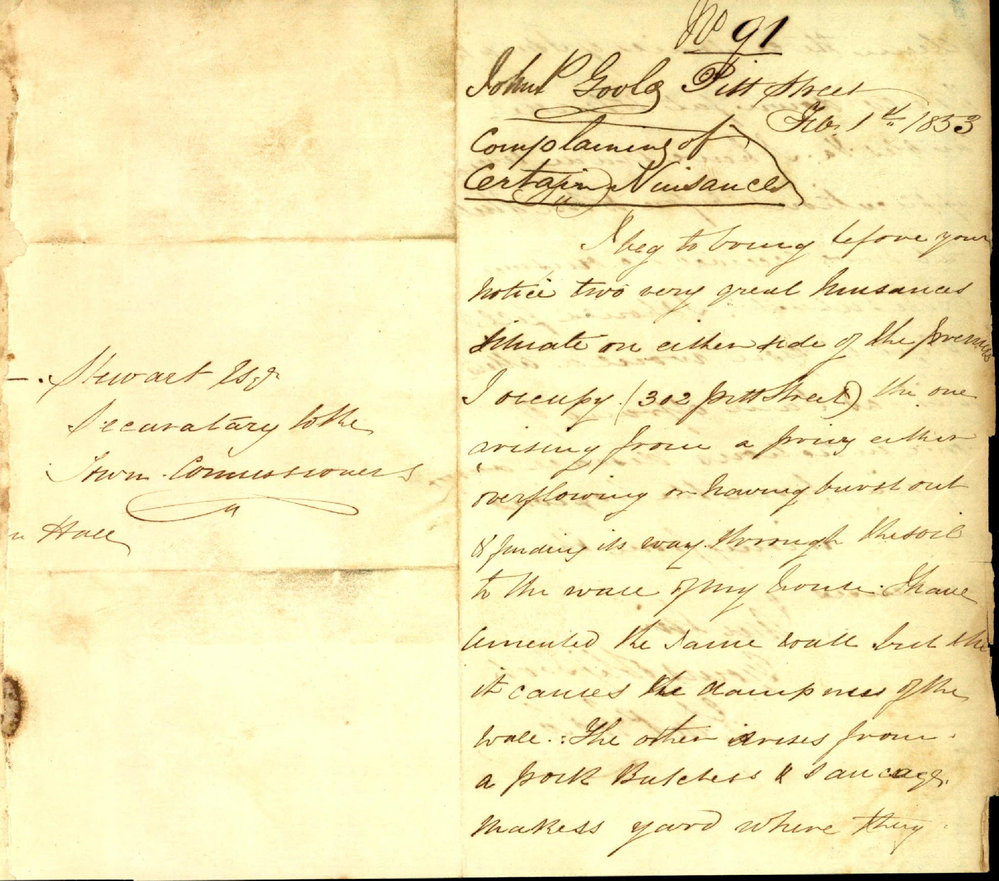 —. Stewart Esqr
Securatary to the
Town Comissioners
n Hall
No 91
John P Goold Pitt Street
Feb 1st 1853
Complaining of
Certain Nuisances
I beg to bring before your
notice two very great nuisances
situate on either side of the premises
I occupy (302 pitt Street) the one
arising from a privy either
overflowing or having burst out
& finding its way through the soil
to the wall of my house. I have
cemented the same wall but the
it causes the dampness of the
wall. The other arises from
a pork Butchers & Saucage
makess yard where they